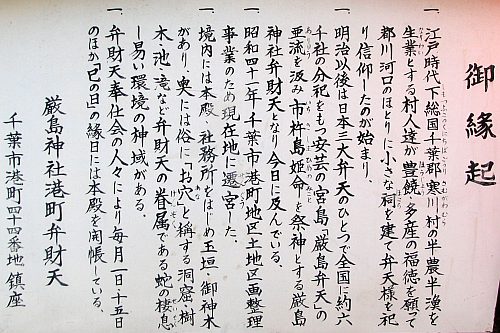 御縁起
一、江戸時代下総国千葉郡寒川村の半農半漁を
生業とする村人達が豊饒・多産の福徳を願って
都川河口のほとりに小さな祠を建て弁天様を祀
り信仰したのが始まり、
一、明治以後は日本三大弁天のひとつで全国に約六
千社の分祀をもつ安芸の宮島「厳島弁天」の
亜流を汲み市杵島姫命を祭神とする厳島
神社弁財天となり今日に及んでいる。
一、昭和四十二年千葉市港町地区土地区画整理
事業のため現在地に遷宮した。
一、境内には本殿、社務所をはじめ玉垣・御神木
があり、奥には俗に「お穴」と称する洞窟・樹
木・池・滝など弁財天の眷属である蛇の棲息
し易い環境の神域がある。
一、弁財天奉仕会の人々により毎月一日十五日
のほか己の日の縁日には本殿を開帳している、
厳島神社港町弁財天
千葉市港町四十四番地 鎮座